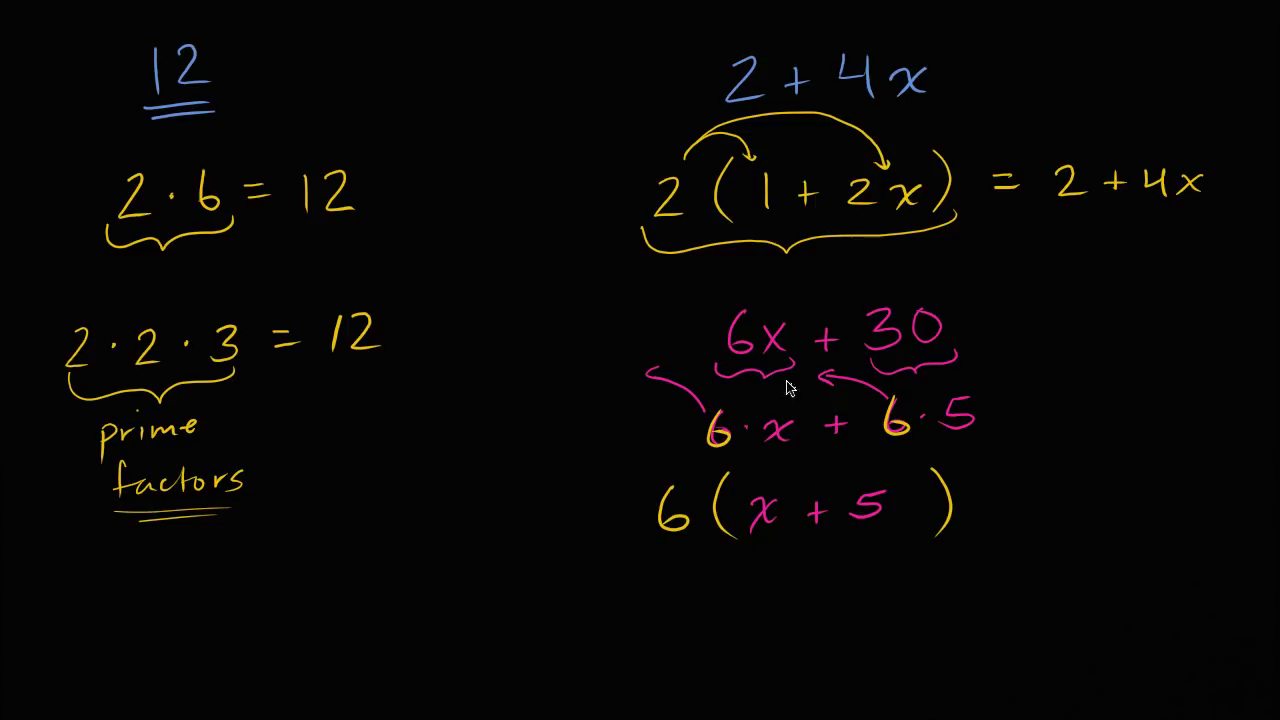 12
2 · 6 = 12
2 · 2 · 3 = 12
prime
factors
2 + 4x
2 (1 + 2x) = 2 + 4x
6x + 30
6 · x + 6 · 5
6 (x + 5)